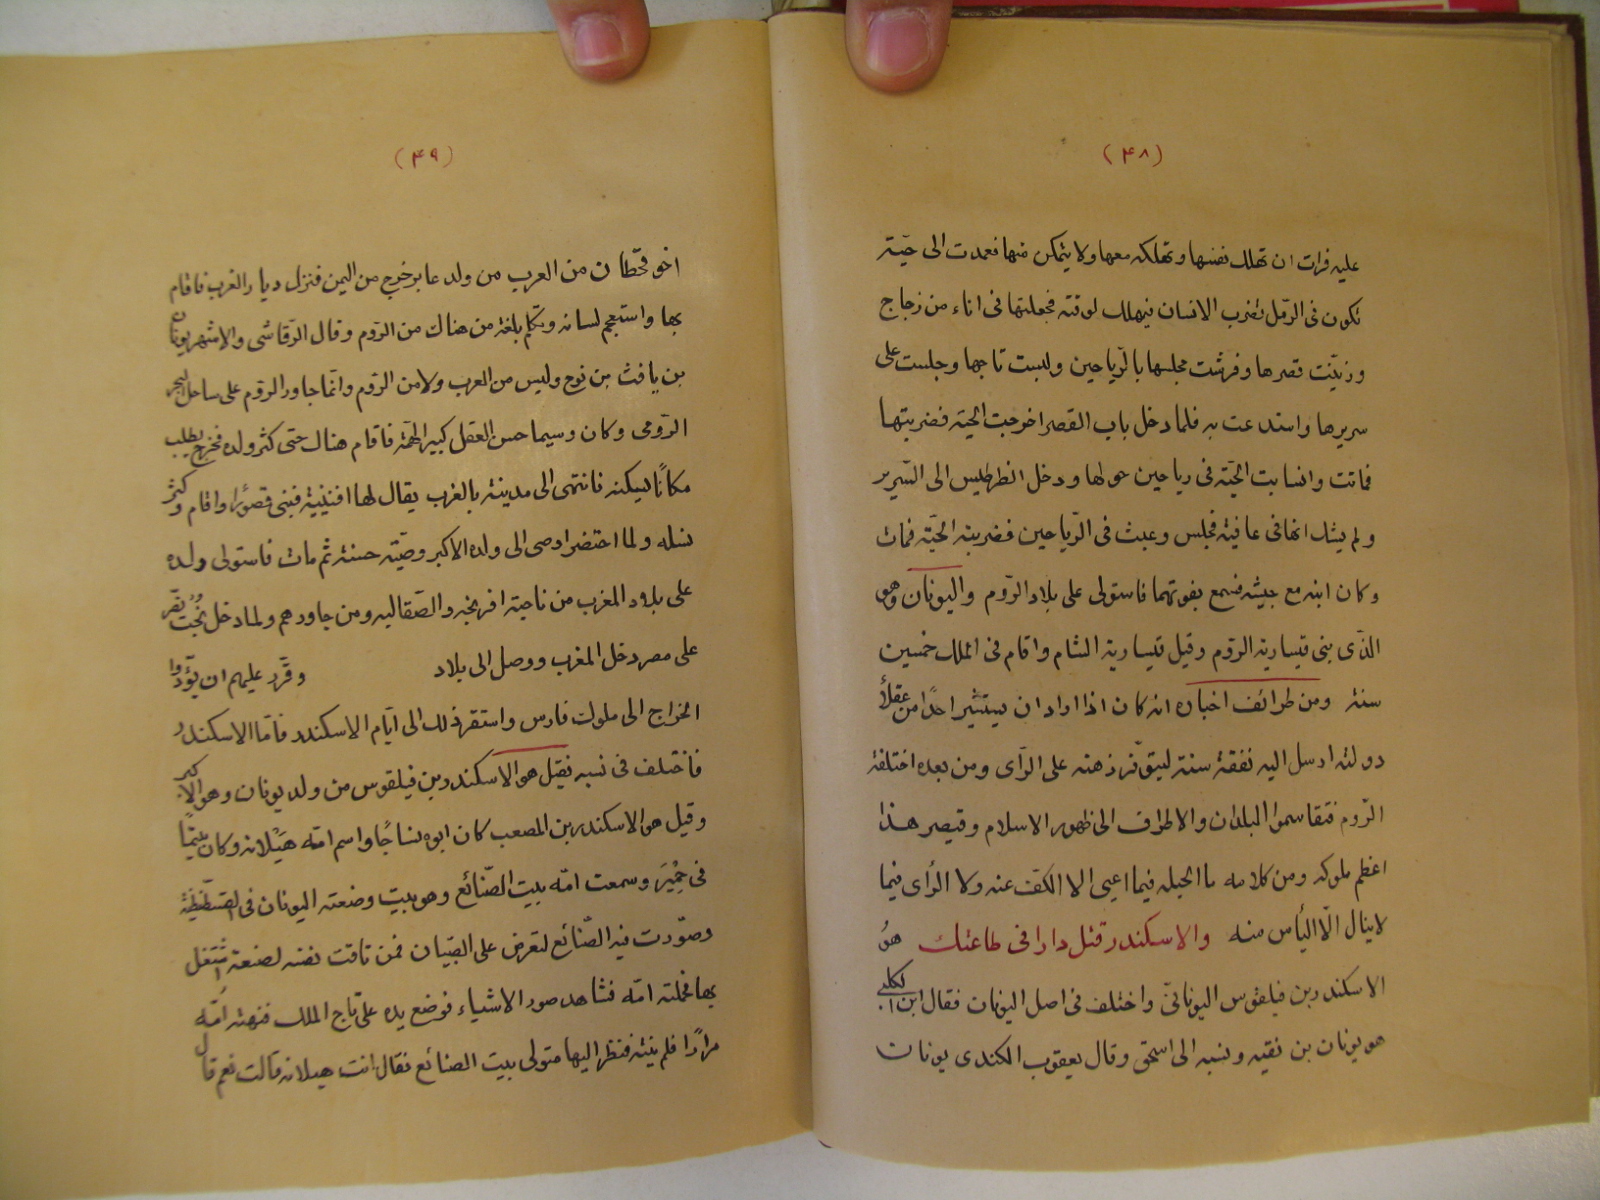 (۴۸)
عليه فرات ان تهلك نفسها وتهلكه معها ولا يتمكن منها فعمدت الى حيّة
تكون فى الرّمل تضرب الانسان فيهلك لوقته فجعلتها فى اناء من زجاج
وزيّنت قصرها وفرشت مجلسها بالرّياحين ولبست تاجها وجلست على
سريرها واستدعت به فلما دخل باب القصر اخرجت الحيّة فضربتها
فماتت وانسابت الحيّة فى رياحين حولها ودخل انطرطليس الى السّرير
ولم يشك انها فى عافية فجلس وعبث فى الرّياحين فضربته الحيّة فمات
وكان ابنه مع جيشه فسمع بفوتهما فاستولى على بلاد الرّوم واليونان وهو
الذّى بنى قيسارية الرّوم وقيل قيسارية الشام واقام فى الملك خمسين
سنة ومن طرائف اخباره انه كان اذا اراد ان يستشير احدًا من عقلاء
دولته ارسل اليه نفقة سنة ليتوفّر ذهنه على الرّأى ومن بعده اختلفة
الرّوم فتقاسموا البلدان والاطراف الى ظهور الاسلام وقيصر هذا
اعظم ملوكه ومن كلامه ما الحيلة فيما اعيى الا الكفّ عنه ولا الرّأى فيما
لا ينال الّا اليأس منه والاسكندر قتل دارا فى طاعتك هوُ
الاسكندر بن فيلقوس اليونانىّ واختلف فى اصل اليونان فقال ابن الكلبى
هو يونان بن نقيه ونسبه الى اسحق وقال يعقوب الكندى يونان
(۴۹)
اخو قحطان من العرب من ولد عابر خرج من اليمن فنزل ديار الغرب فاقام
بها واستعجم لسانه وتكلم بلغة من هناك من الرّوم وقال الرّقاشى والاشهر يونان
بن يافث بن نوح وليس من العرب ولا من الرّوم وانّما جاور الرّوم على ساحل البحر
الرّومى وكان وسيما حسن العقل كبير الهمّة فاقام هناك حتى كثر ولده فخرج يطلب
مكانًا ليسكنه فانتهى الى مدينة بالغرب يقال لها افنينية فبنى قصورًا واقام وكثر
نسله ولما احتضر اوصى الى ولده الاكبر وصيّة حسنة ثم مات فاستولى ولده
على بلاد المغرب من ناحية افرنجه والصّقالبه ومن جاورهم ولما دخل بُخْت نصّر
على مصر دخل المغرب ووصل الى بلاد وقرّر عليهم ان يؤدّوا
الخراج الى ملوك فارس واستقر ذلك الى ايّام الاسكندر فامّا الاسكندرُ
فاختلف فى نسبه فقيل هو الاسكندر بن فيلقوس من ولد يونان وهو الاكبر
وقيل هو الاسكندر بن المصعب كان ابوه نساجًا واسم امّه هَيْلانه وكان يتيمًا
فى حِمْيَر وسمعت امّه ببيت الصّنائع وهو بيت وضعته اليونان فى القسطنطنيّة
وصوّرت فيه الصّنائع لتعرض على الصّبيان فمن تاقت نفسه لصنعة اشتغل
بها فحملته امّه فشاهد صور الاشياء فوضع يده على تاج الملك فنهته اُمّه
مرارًا فلم ينته فنظر اليها متولى بيت الصنائع فقال انت هيلانه قالت نعم قال